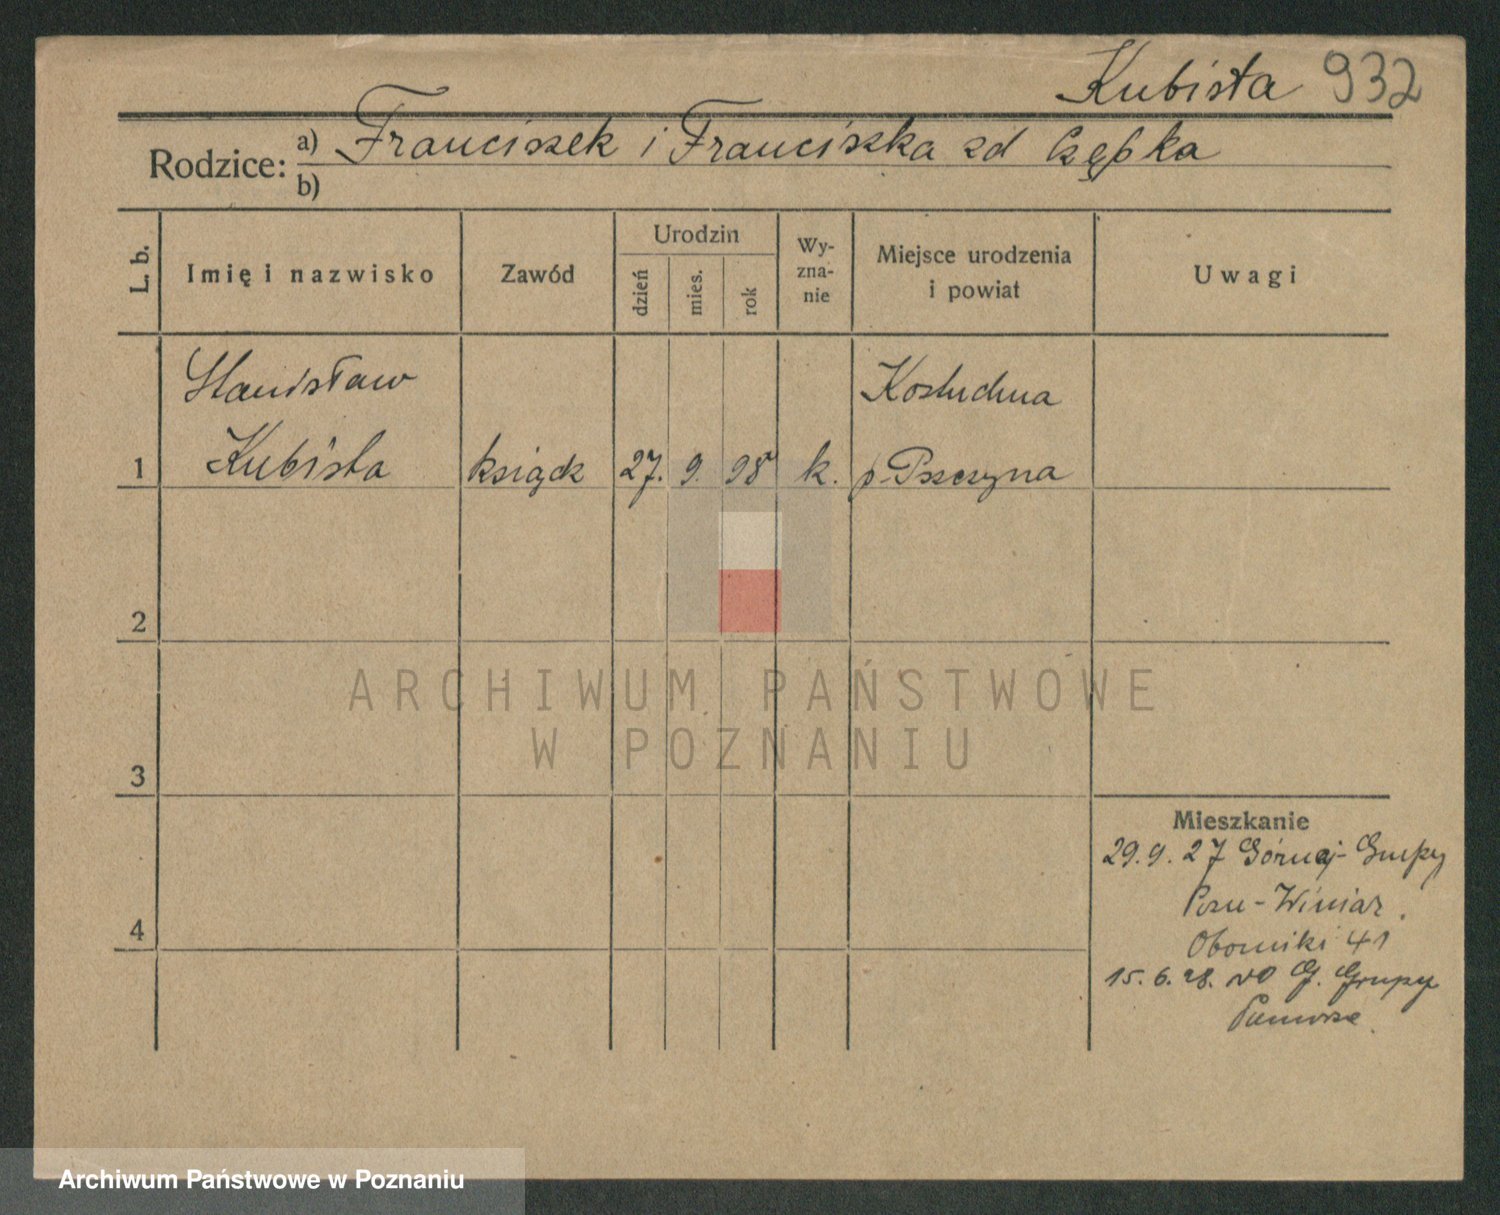 Kubista 932
Rodzice: a) Franciszek i Franciszka zd Czępka
b)
L. b.
Imię i nazwisko
Zawód
Urodzin
dzień
mies.
rok
Wy-
zna-
nie
Miejsce urodzenia
i powiat
Uwagi
Stanisław Kostuchna
1 Kubista ksiądz 27. 9. 98 k. p. Pszczyna
2
3
4
Mieszkanie
29.9.27 Górnej-Grupy
Pozn-Winiar.
Obornicki 41
15.6.28. do G. Grupy
Pomorze
ARCHIWUM PAŃSTWOWE
W POZNANIU
Archiwum Państwowe w Poznaniu